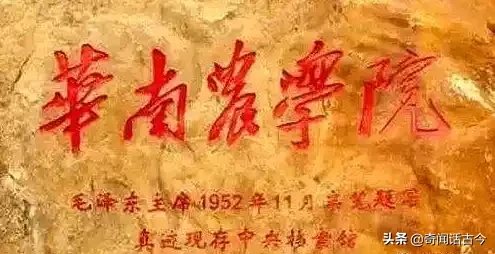 華南農學院
毛泽东主席1952年11月亲笔题写
真迹现存中央档案馆
头条 @奇闻话古今